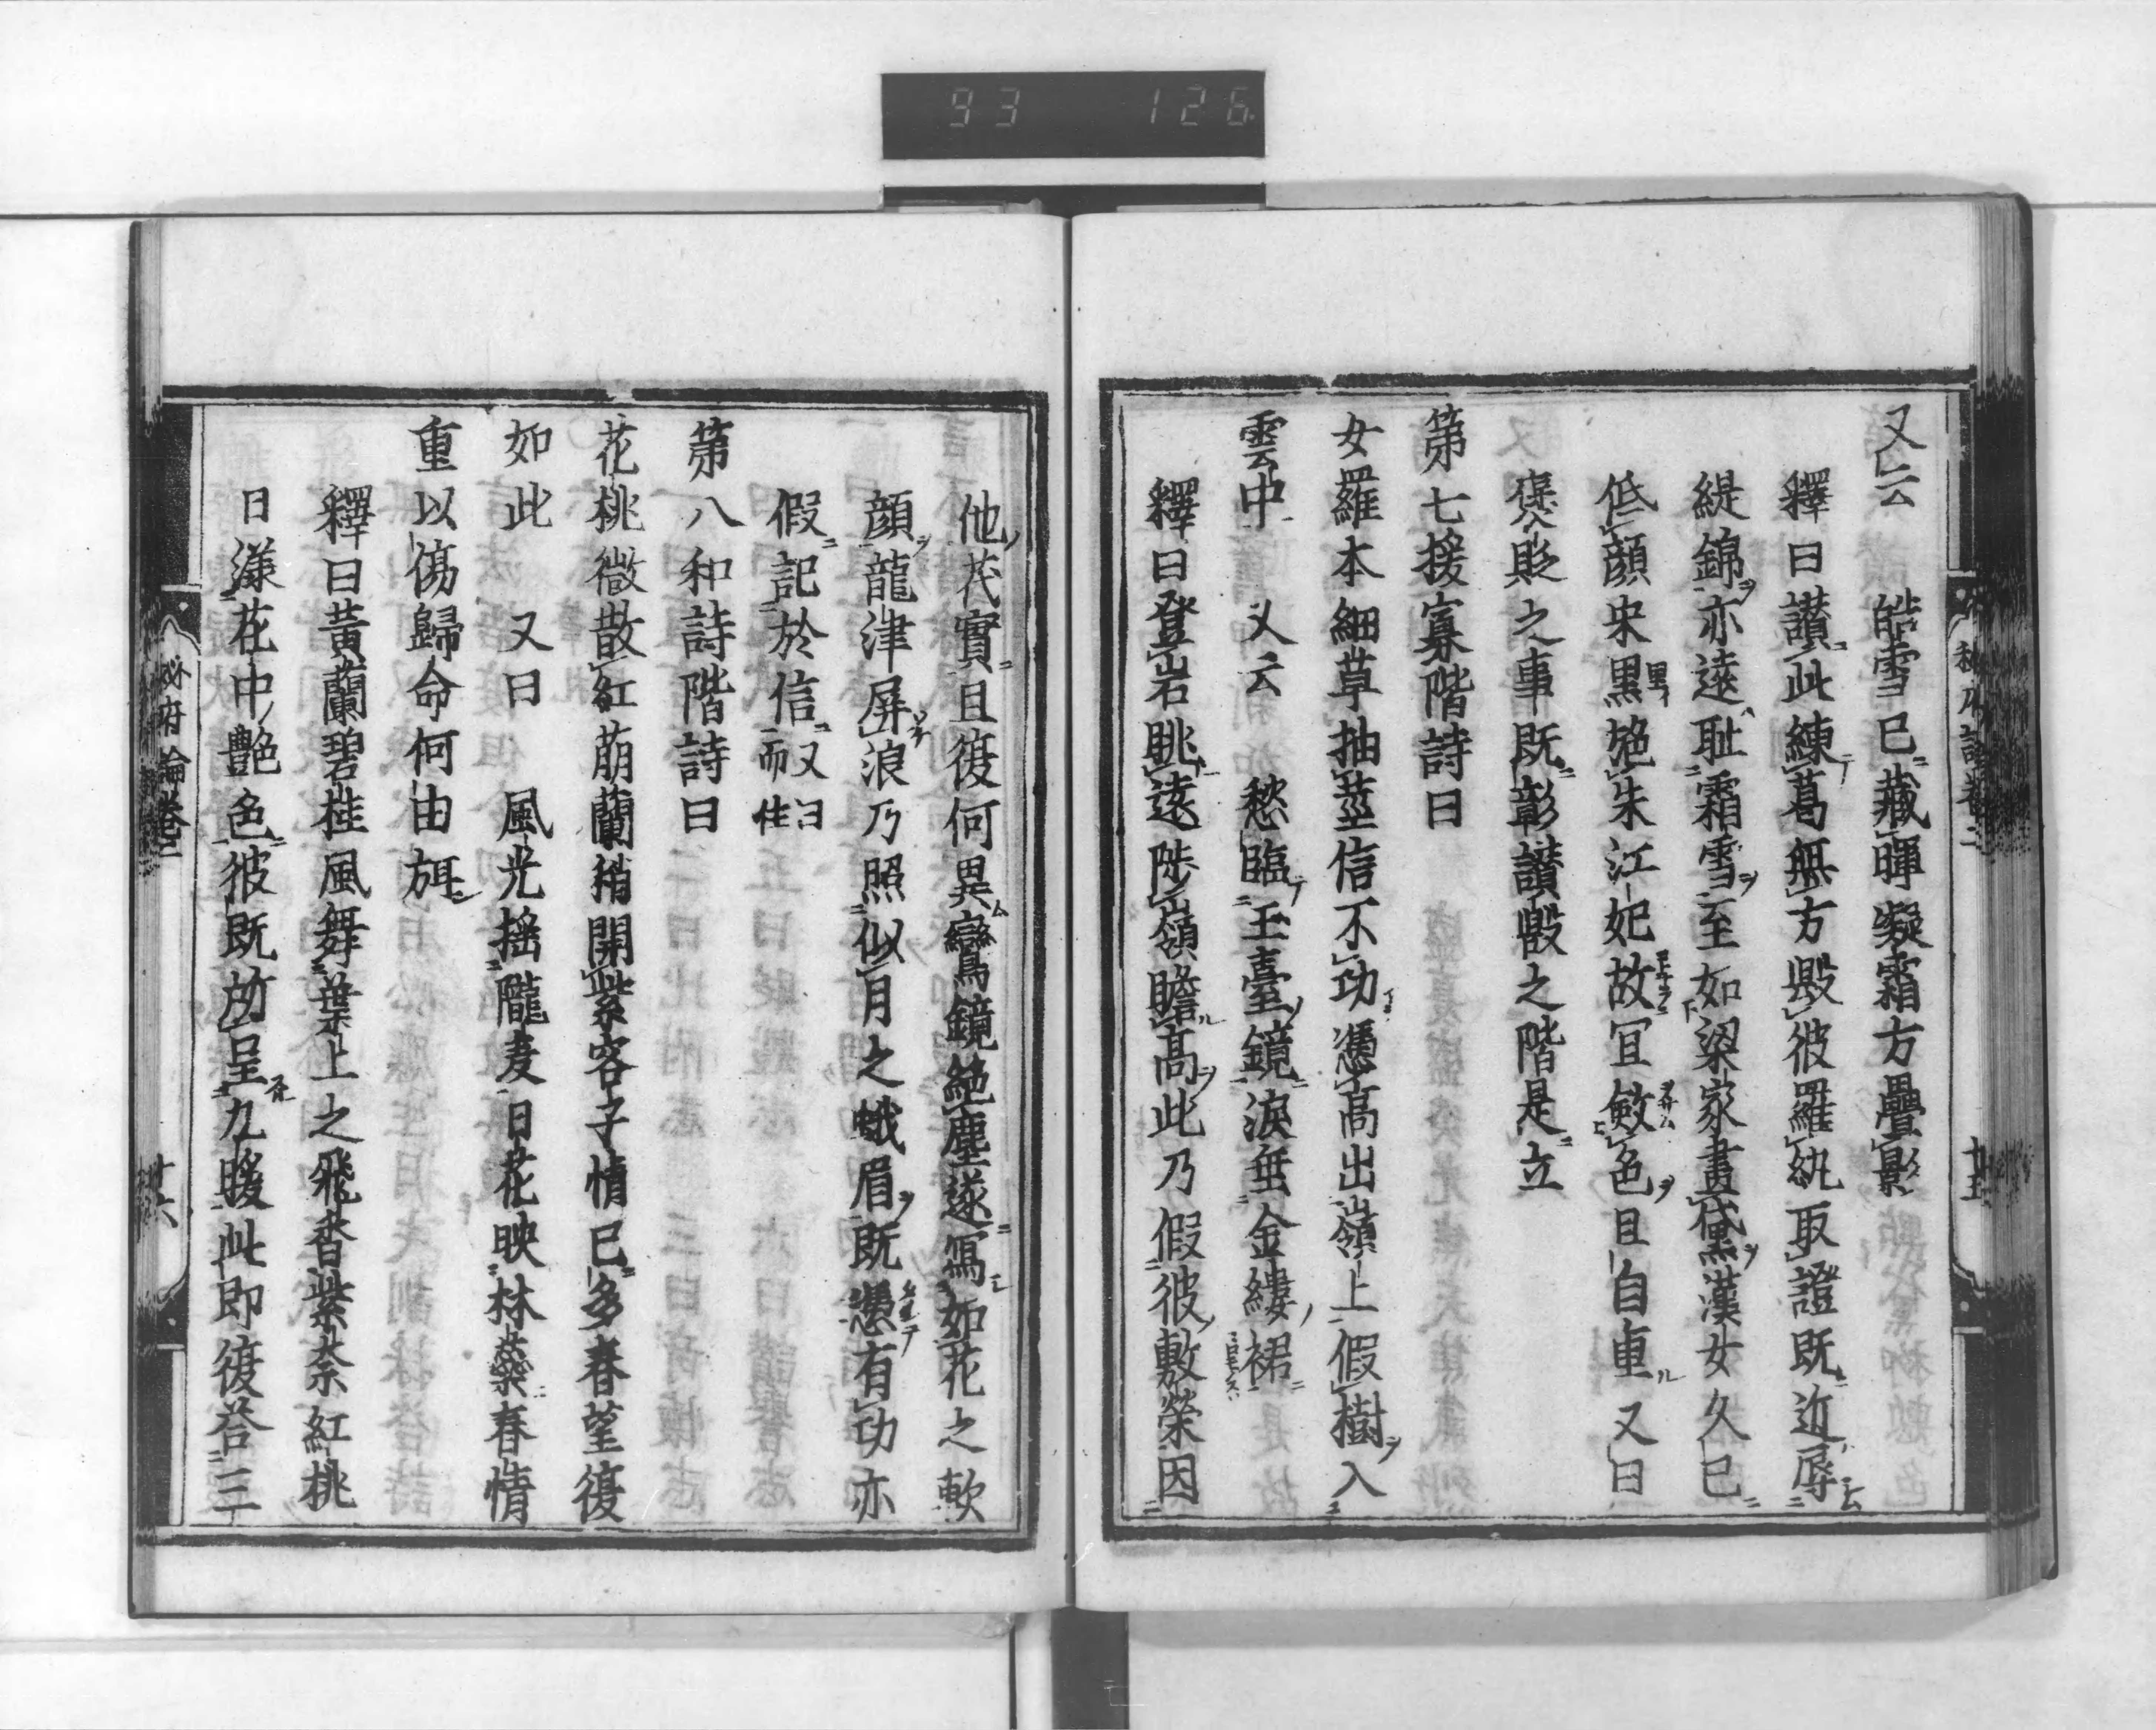 93 126
又云　皓雪已藏暉凝霜方疊影
釋曰讃此練葛無方毀彼羅紈取證既近辱
緹錦亦遠耻霜雪至如梁家畫黛漢女久已
低顔宋黑䒌朱江妃故冝斂色且自連又曰
襃貶之事既彰讃毀之階是立
第七援寡階詩曰
女羅本細草抽莖信不功憑高出嶺上假樹入
雲中　又云　愁臨玉臺鏡淚垂金縷裙
釋曰登岩眺遠陟嶺瞻高此乃假彼敷榮因
他茂實且復何異鸞鏡絶塵遂寫如花之軟
顔龍津屏浪乃照似月之蛾眉既憑有功亦
假記於信又曰而性
第八和詩階詩曰
花桃微散紅萠蘭稍開紫客子情已多春望復
如此　又曰　風光摇隴麦日花映林蘂春情
重以傷歸命何由弭
釋曰黃蘭碧桂風舞葉上之飛香紫柰紅桃
日漾花中艷色彼既放呈九暖此即復荅三
秘府論卷二
十五
秘府論卷二
十六